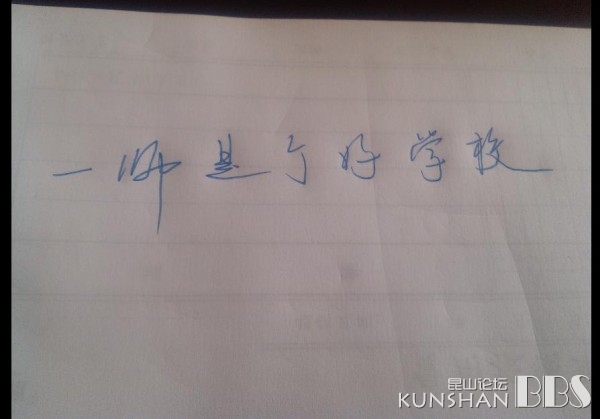 一师是个好学校
昆山论坛
KUNSHAN BBS